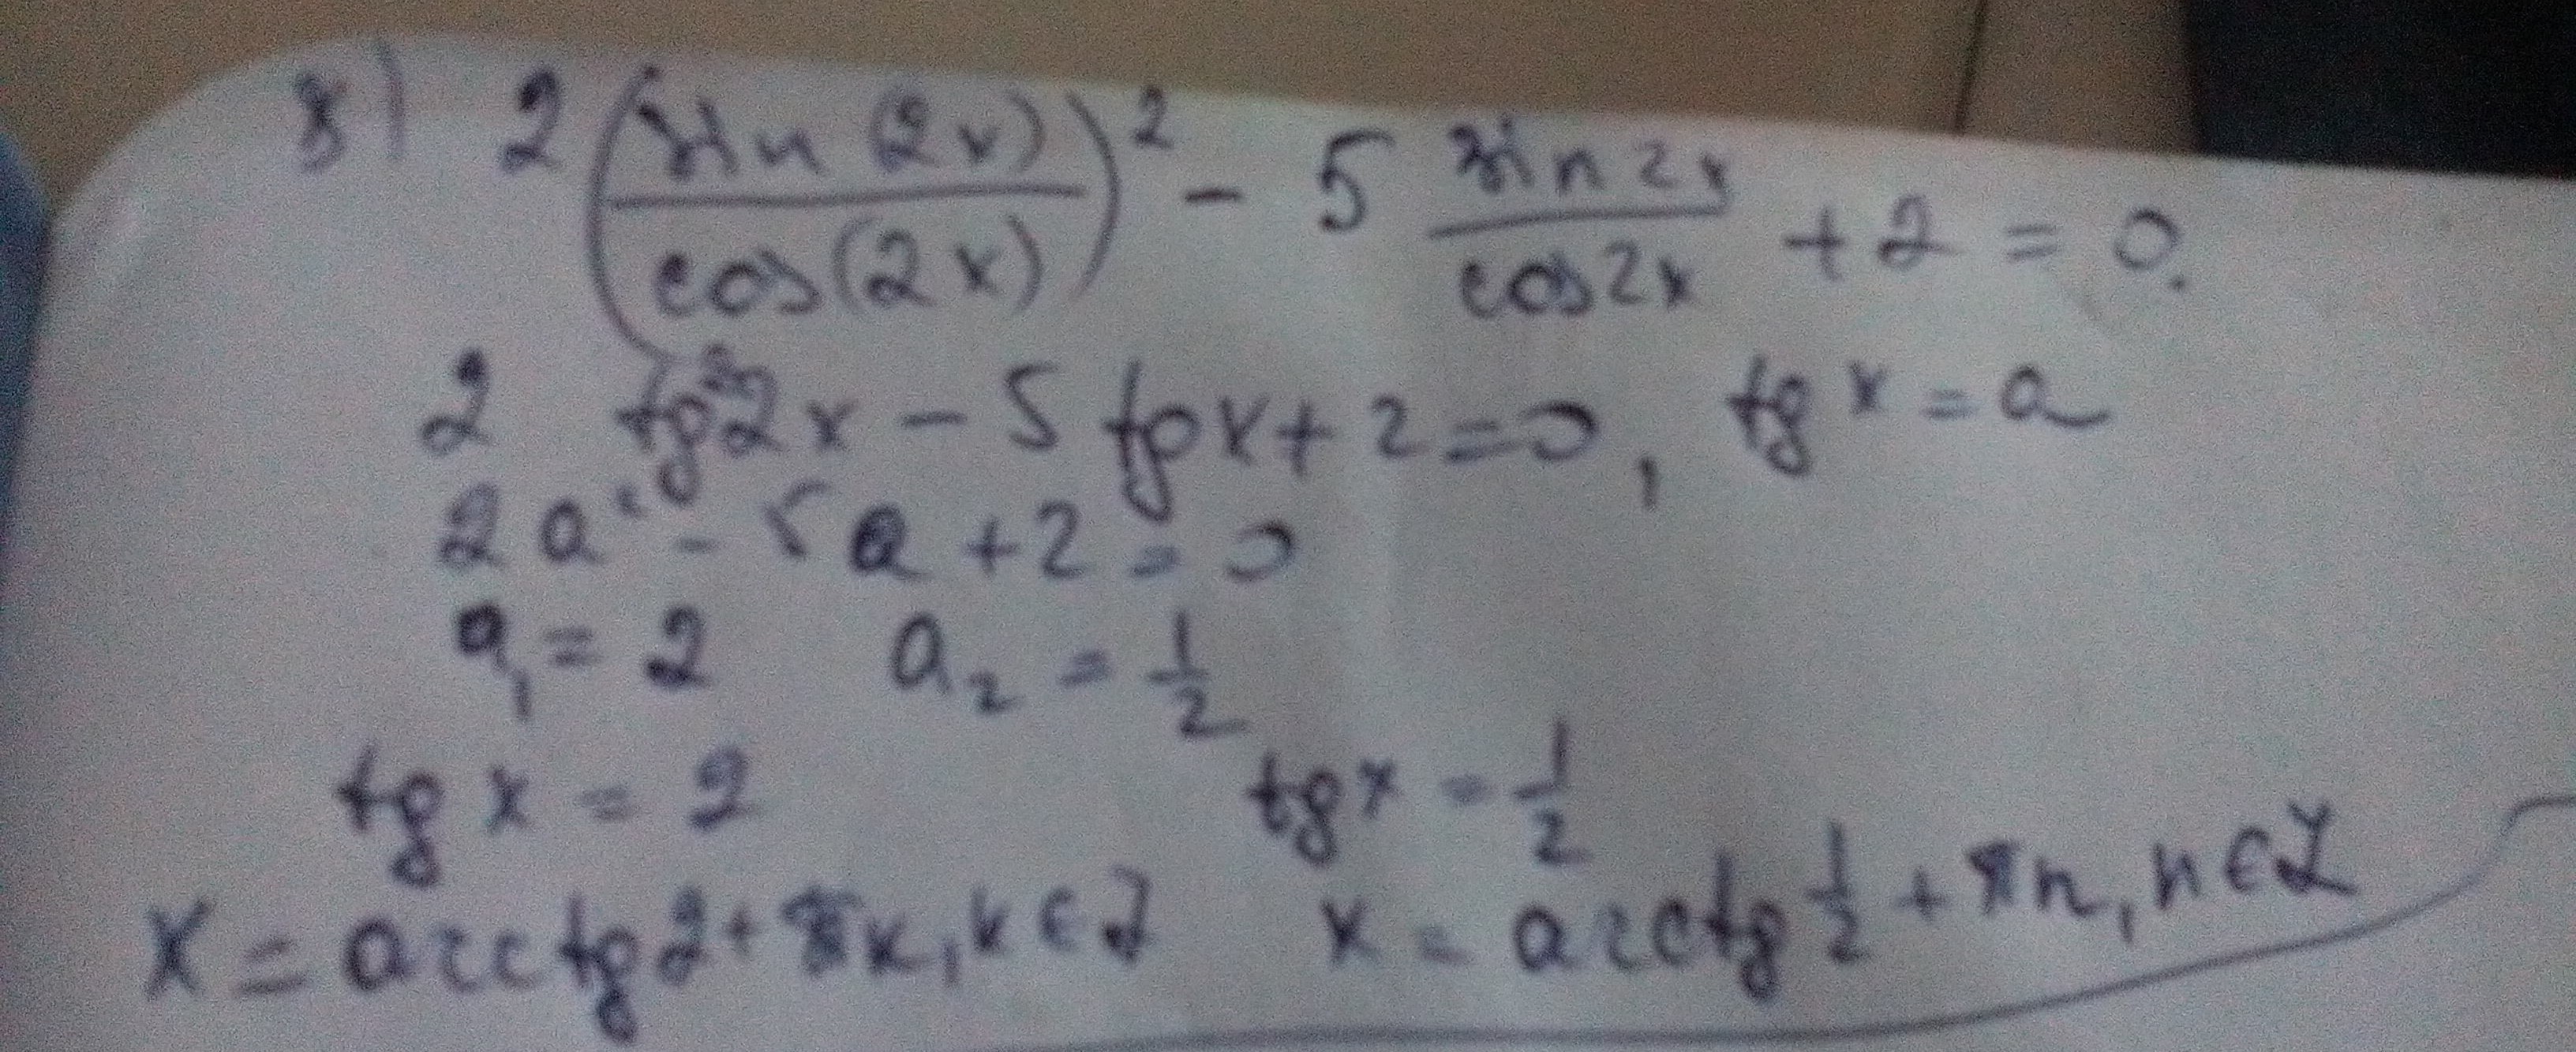 8) 2(sin(2x)/cos(2x))² - 5 sin2x/cos2x + 2 = 0.
2 tg²2x - 5 tgx + 2 = 0, tg x = a
2a² - 5a + 2 = 0
a₁ = 2 a₂ = 1/2
tg x = 2 tgx = 1/2
x = arctg2 + πk, k∈Z x = arctg 1/2 + πn, n∈Z